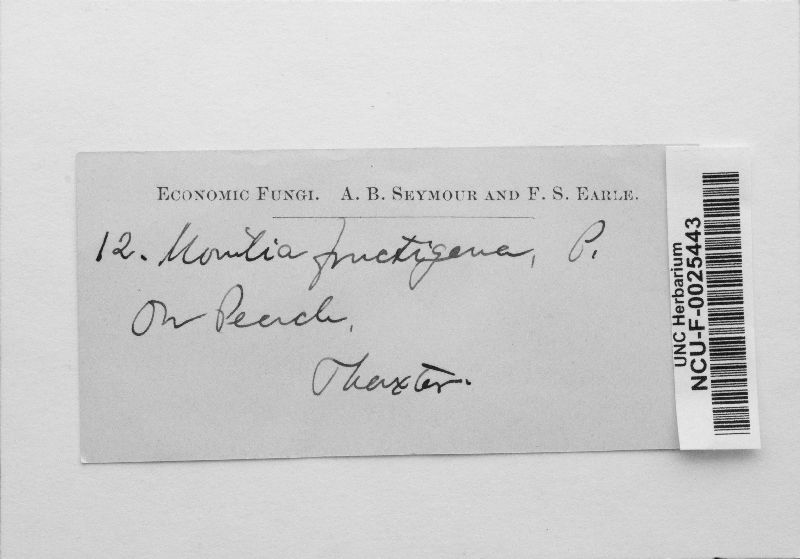 ECONOMIC FUNGI. A. B. SEYMOUR AND F. S. EARLE.
12. Monilia fructigena, P.
On Peach.
Thaxter.
UNC Herbarium
NCU-F-0025443